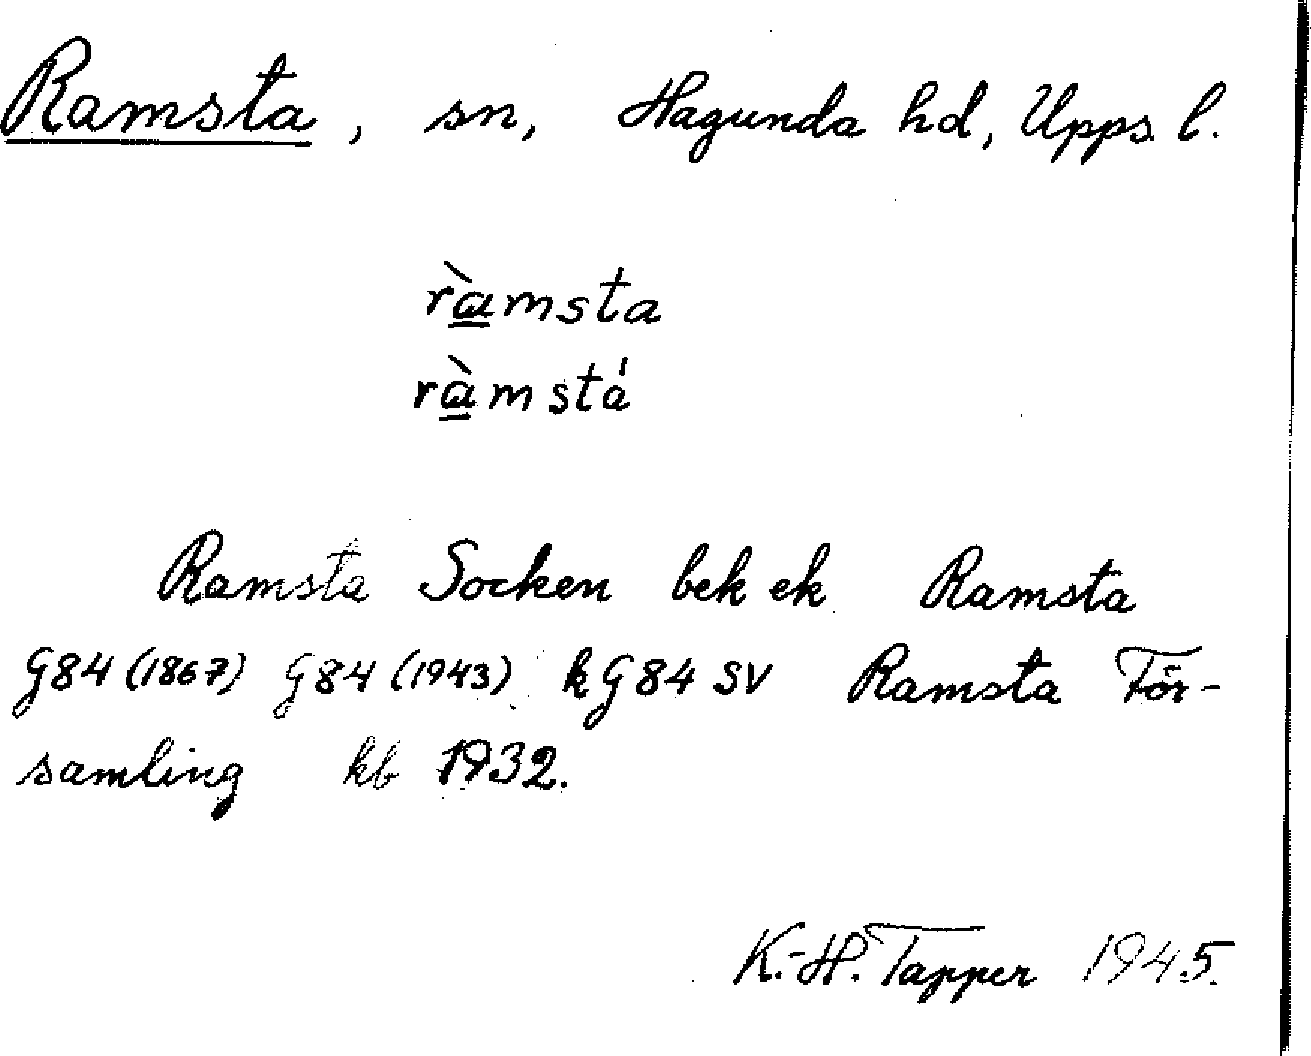 Ramsta, sn, Hagunda hd, Upps. l.
ràmsta
ràmstá
Ramsta Socken bek ek Ramsta
G84 (1867) G84 (1943) kG84 SV Ramsta För-
samling kb 1932.
K.-H. Tapper 1945.